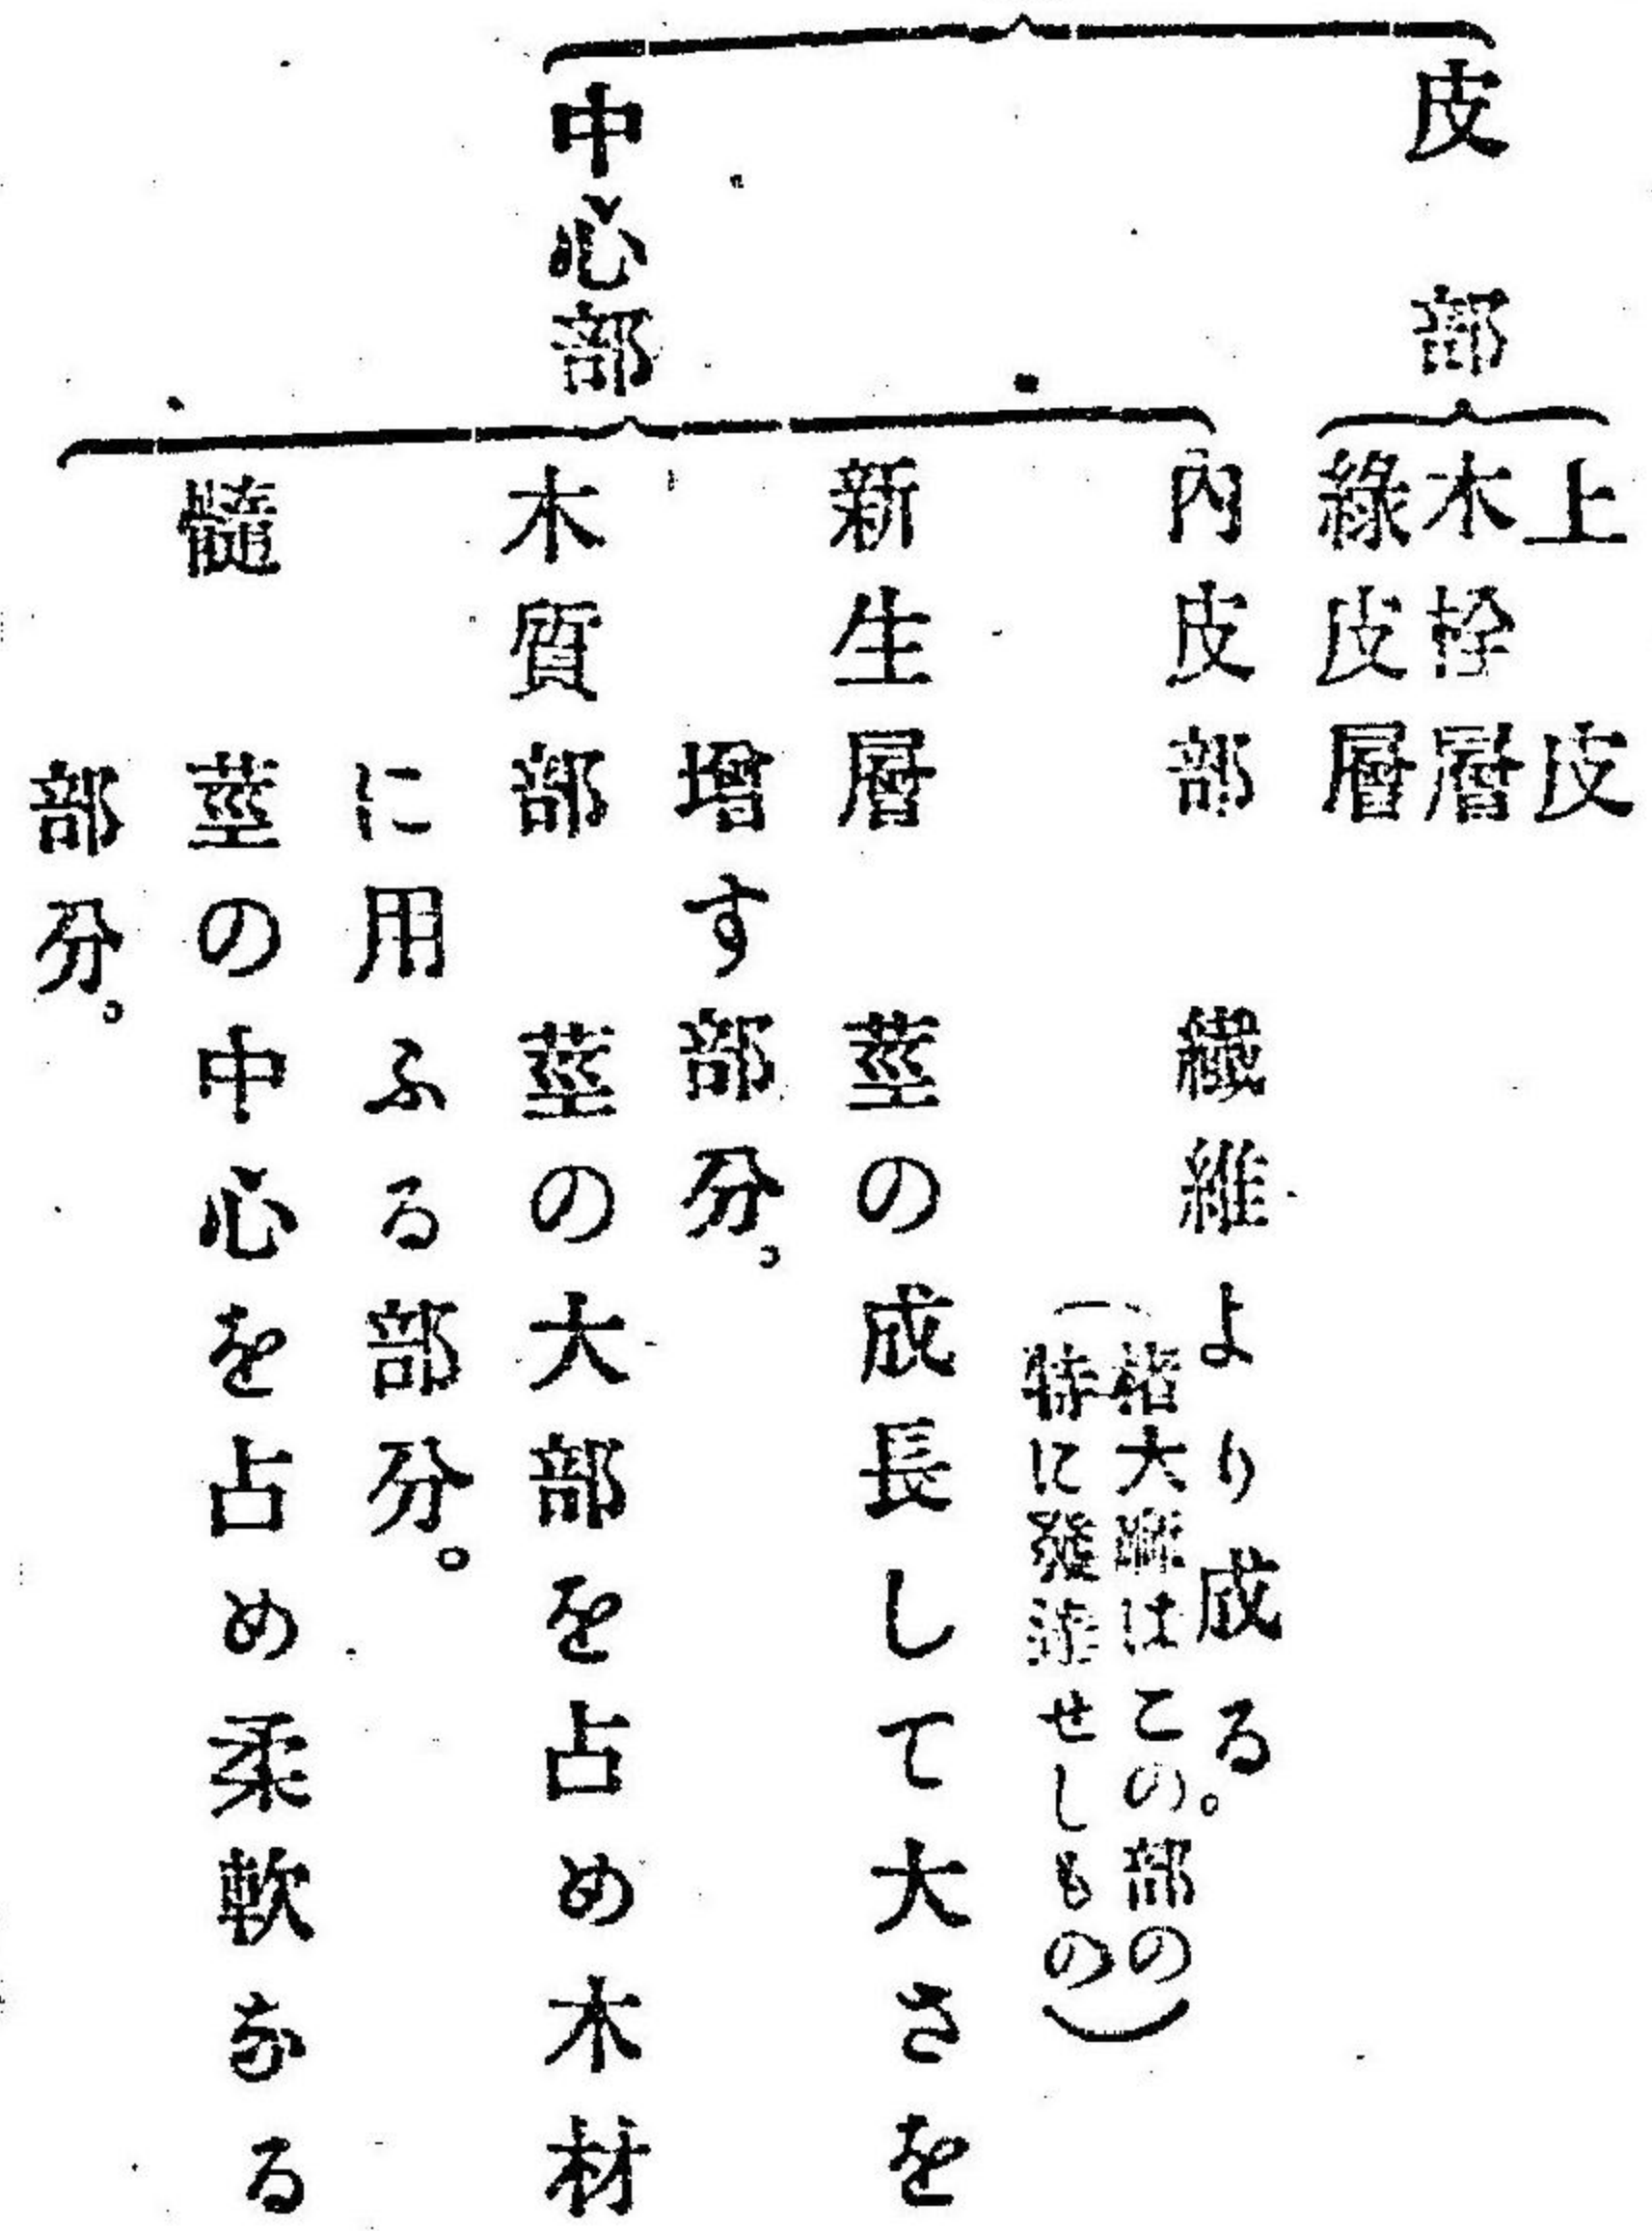 皮部
上皮
木栓層
綠皮層
中心部
內皮部 纎維より成る。
(楮大麻はこの部の
特に發達せしもの)
新生層 莖の成長して大さを
增す部分。
木質部 莖の大部を占め木材
に用ふる部分。
髓 莖の中心を占め柔軟なる
部分。